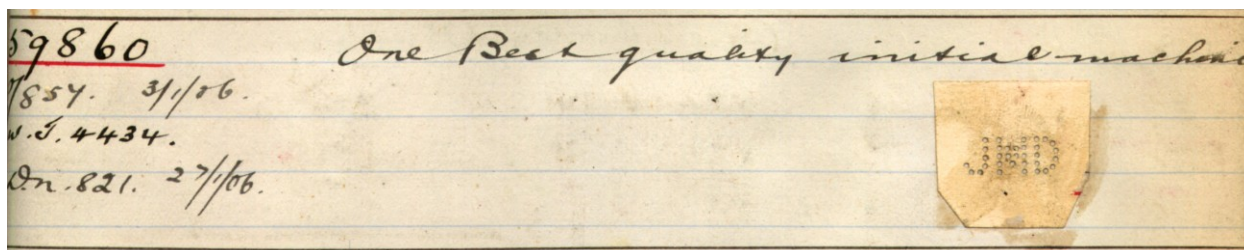 59860
One Best quality initial machine
7/857. 3/1/06.
W.J. 4434.
Dn. 821. 27/1/06.